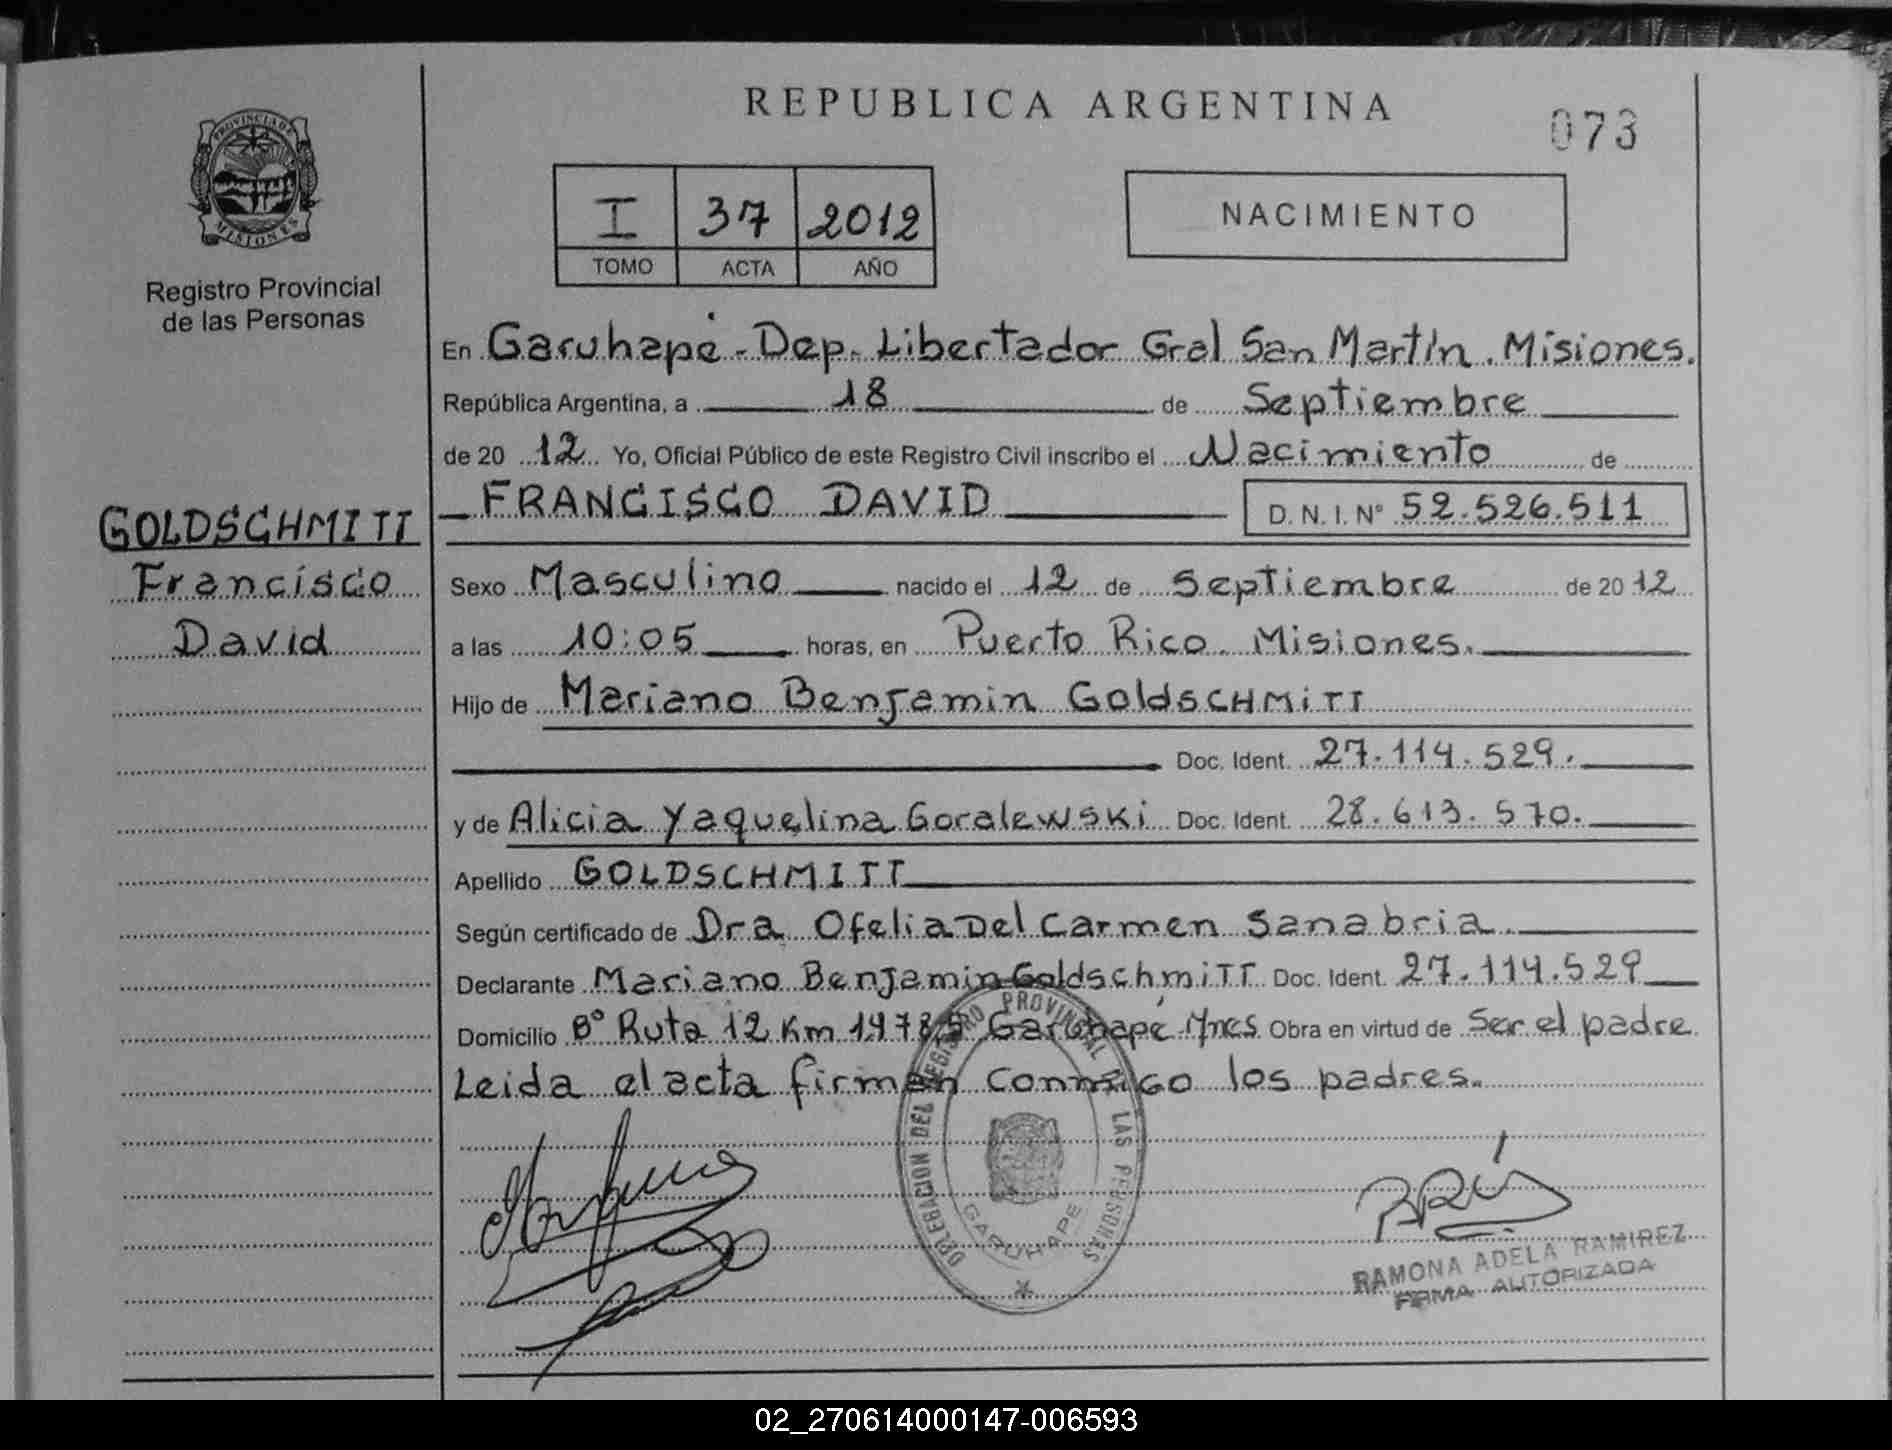 REPUBLICA ARGENTINA
073
PROVINCIA DE
MISIONES
Registro Provincial
de las Personas
I 37 2012
TOMO ACTA AÑO
NACIMIENTO
En Garuhapé - Dep. Libertador Gral San Martín. Misiones.
República Argentina, a 18 de Septiembre
de 20 12 Yo, Oficial Público de este Registro Civil inscribo el Nacimiento de
FRANCISCO DAVID D. N. I. Nº 52.526.511
GOLDSCHMITT
Francisco
David
Sexo Masculino nacido el 12 de Septiembre de 20 12
a las 10:05 horas, en Puerto Rico. Misiones.
Hijo de Mariano Benjamin GoldSCHMiTT
Doc. Ident. 27.114.529.
y de Alicia Yaquelina Goralewski Doc. Ident. 28.613.570.
Apellido GOLDSCHMITT
Según certificado de Dra Ofelia Del Carmen Sanabria.
Declarante Mariano Benjamin GoldschmiTT Doc. Ident. 27.114.529
Domicilio Bº Ruta 12 Km Garuhapé - Mnes Obra en virtud de Ser el padre
Leida el acta firman conmigo los padres.
DELEGACION DEL REGISTRO PROVINCIAL DE LAS PERSONAS
GARUHAPE
RAMONA ADELA RAMIREZ
FIRMA AUTORIZADA
02_270614000147-006593